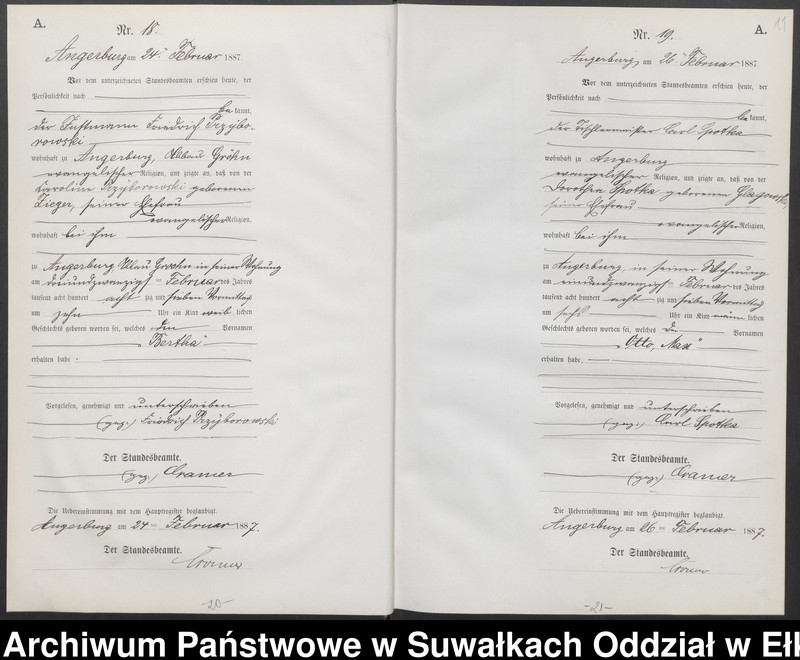 A.
Nr. 18.
Angerburg am 24ten Februar 1887
Vor dem unterzeichneten Standesbeamten erschien heute, der
Persönlichkeit nach
be kannt,
der Instmann Friedrich Przybo-
rowski
wohnhaft zu Angerburg, Abbau Gröhn
evangelischer Religion, und zeigte an, daß von der
Karoline Przyborowski geborenen
Zieger, seiner Ehefrau
evangelischer Religion,
wohnhaft bei ihm
zu Angerburg Abbau Groehn in seiner Wohnung
am dreiundzwanzigsten Februar des Jahres
tausend acht hundert acht zig und sieben Vormittag
um zehn Uhr ein Kind weib lichen
Geschlechts geboren worden sei, welches den Vornamen
„Bertha"
erhalten habe
Vorgelesen, genehmigt und unterschrieben
(gez.) Friedrich Przyborowski
Der Standesbeamte.
(gez.) Cramer
Die Uebereinstimmung mit dem Hauptregister beglaubigt.
Angerburg am 24ten Februar 1887.
Der Standesbeamte.
Cramer
-20-
11
A.
Nr. 19.
Angerburg am 26ten Februar 1887
Vor dem unterzeichneten Standesbeamten erschien heute, der
Persönlichkeit nach
be kannt,
der Tischlermeister Carl Spotka
wohnhaft zu Angerburg
evangelischer Religion, und zeigte an, daß von der
Dorothea Spotka geborenen
seiner Ehefrau
evangelischer Religion,
wohnhaft bei ihm
zu Angerburg in seiner Wohnung
am Februar des Jahres
tausend acht hundert acht zig und sieben Vormittag
um sechs Uhr ein Kind männ lichen
Geschlechts geboren worden sei, welches die Vornamen
„Otto, Max"
erhalten habe,
Vorgelesen, genehmigt und unterschrieben
(gez.) Carl Spotka
Der Standesbeamte.
(gez.) Cramer
Die Uebereinstimmung mit dem Hauptregister beglaubigt.
Angerburg am 26ten Februar 1887.
Der Standesbeamte.
Cramer
-21-
Archiwum Państwowe w Suwałkach Oddział w Ełk